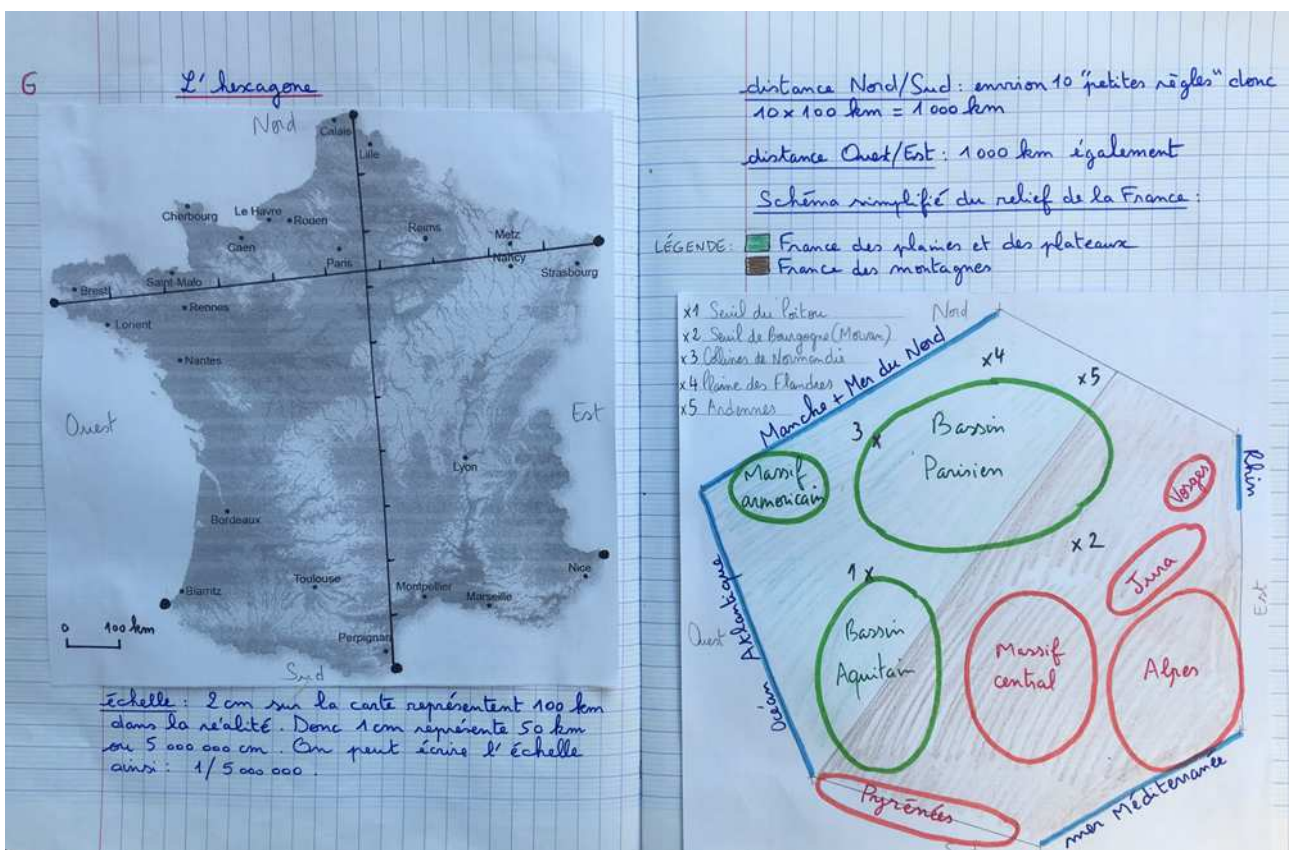 6
L'hexagone
Nord
Calais
Lille
Cherbourg
Le Havre
Rouen
Caen
Reims
Metz
Paris
Nancy
Strasbourg
Brest
Saint-Malo
Rennes
Lorient
Nantes
Ouest
Est
Lyon
Bordeaux
Biarritz
Toulouse
Montpellier
Marseille
Nice
Perpignan
0 100 km
Sud
échelle : 2 cm sur la carte représentent 100 km
dans la réalité. Donc 1 cm représente 50 km
ou 5 000 000 cm. On peut écrire l'échelle
ainsi : 1/5 000 000.
distance Nord/Sud : environ 10 "petites règles" donc
10 x 100 km = 1 000 km
distance Ouest/Est : 1 000 km également
Schéma simplifié du relief de la France :
LÉGENDE : France des plaines et des plateaux
France des montagnes
x1 Seuil du Poitou
x2 Seuil de Bourgogne (Morvan)
x3 Collines de Normandie
x4 Plaine des Flandres
x5 Ardennes
Nord
Manche + Mer du Nord
x4
x5
3 x
Bassin
Parisien
Massif
armoricain
Vosges
Rhin
x2
Jura
1 x
Bassin
Aquitain
Massif
central
Alpes
Ouest
Est
Océan Atlantique
Pyrénées
mer Méditerranée